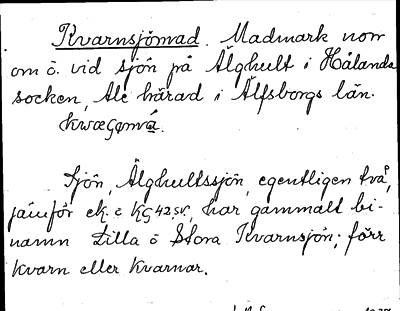 Kvarnsjömad. Madmark norr
om ö. vid sjön på Älghult i Hålanda
socken, Ale härad i Älfsborgs län.
Sjön, Älghultssjön, egentligen två,
jämför ek. c KG 42 sv., har gammalt bi-
namn Lilla o Stora Kvarnsjön; förr
kvarn eller kvarnar.